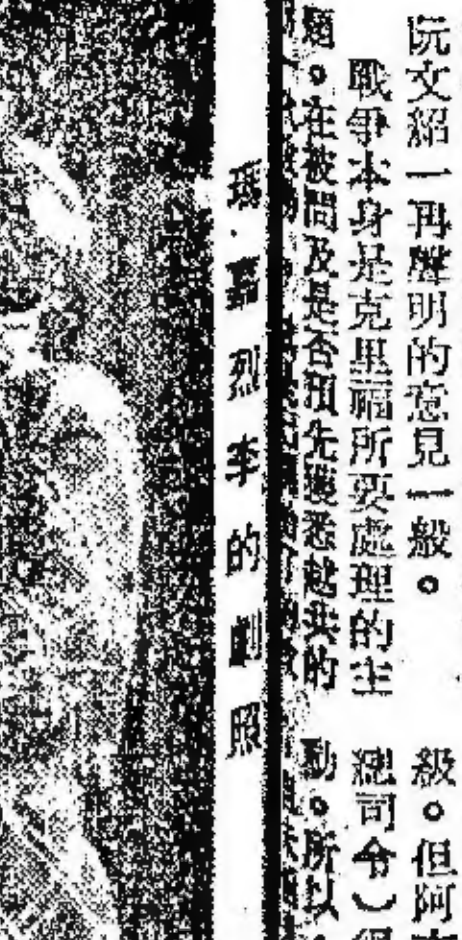 阮文紹一再聲明的意見一般。
戰爭本身是克里福所要處理的主
題。在被問及是否預先獲悉越共的
級。但阿
總司令)
動。所以
瑪·嘉烈李的劇照